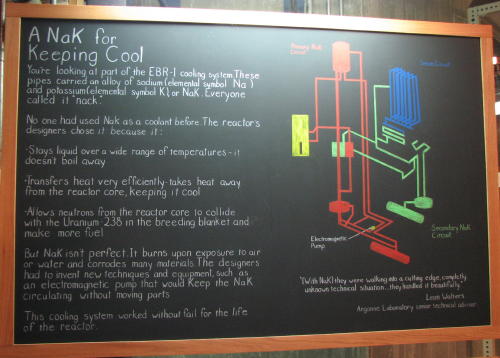 A NaK for
Keeping Cool
You're looking at part of the EBR-1 cooling system. These
pipes carried an alloy of sodium (elemental symbol Na)
and potassium (elemental symbol K), or NaK. Everyone
called it "nack."
No one had used NaK as a coolant before. The reactor's
designers chose it because it:
-Stays liquid over a wide range of temperatures - it
doesn't boil away
-Transfers heat very efficiently - takes heat away
from the reactor core, keeping it cool
-Allows neutrons from the reactor core to collide
with the Uranium-238 in the breeding blanket and
make more fuel
But NaK isn't perfect. It burns upon exposure to air
or water and corrodes many materials. The designers
had to invent new techniques and equipment, such as
an electromagnetic pump that would keep the NaK
circulating without moving parts
This cooling system worked without fail for the life
of the reactor.
Primary NaK
Circuit
Steam Circuit
Secondary NaK
Circuit
Electromagnetic
Pump
"[With NaK] they were walking into a cutting edge, completly
unknown technical situation...they handled it beautifully."
Leon Walters
Argonne Laboratory senior technical advisor